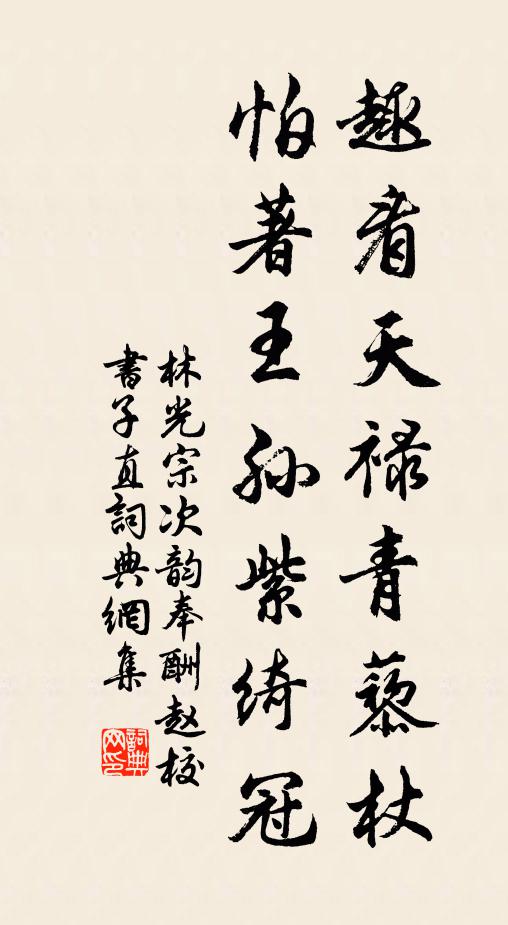 趣看天禄青藜杖
怕著王孙紫绮冠
林光宗次韵奉酬赵校
書子直詞典網集
詞典网印